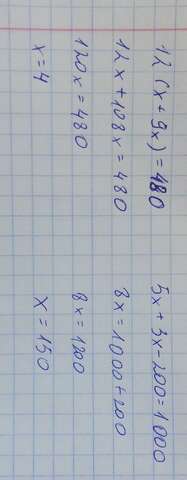 12(x+9x)=480
12x+108x=480
120x=480
x=4
5x+3x-200=1000
8x=1000+200
8x=1200
x=150